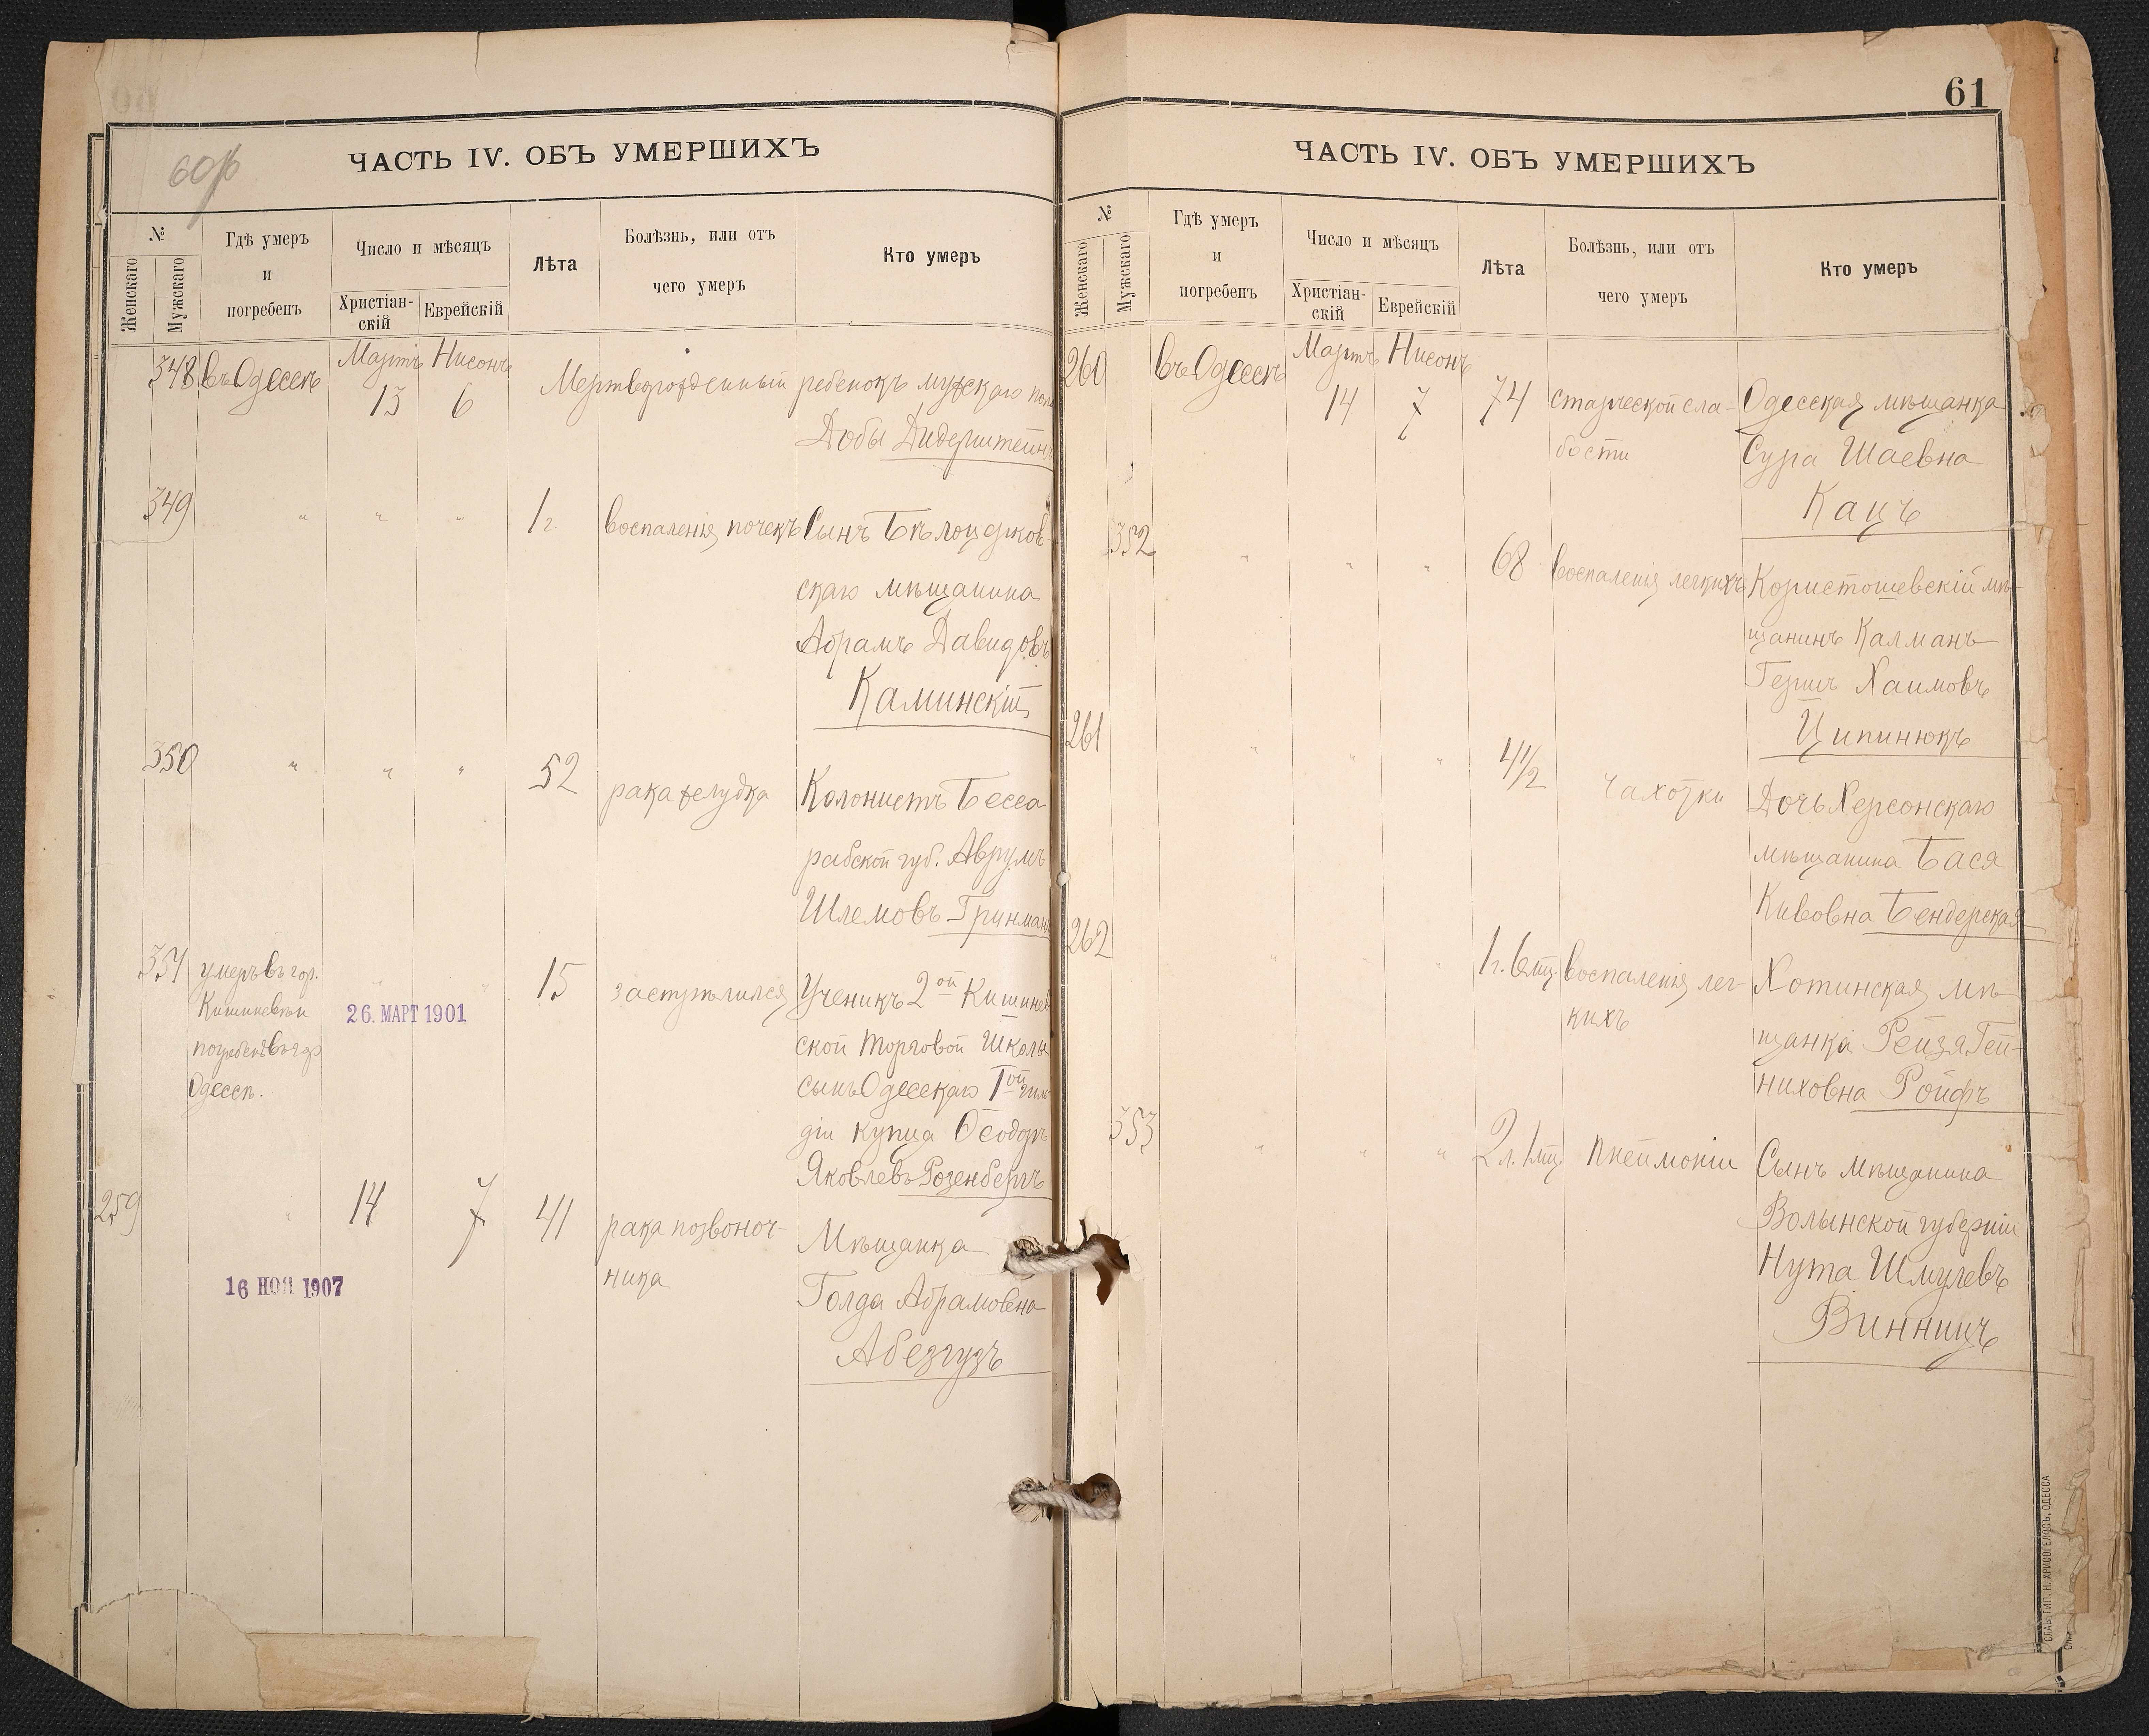 60об
ЧАСТЬ IV. ОБЪ УМЕРШИХЪ
№
Женскаго
Мужскаго
Гдѣ умеръ
и
погребенъ
Число и мѣсяцъ
Христіан-
скій
Еврейскій
Лѣта
Болѣзнь, или отъ
чего умеръ
Кто умеръ
348 въ Одессѣ Мартъ Нисонъ
13 6
Мертворожденный ребенокъ мужскаго пола
Добы Дидерштейнъ
349 " " " 1 г. воспаленія почекъ Сынъ Бѣлоцерков-
скаго мѣщанина
Абрамъ Давидовъ
Каминскій
350 " " " 52 рака желудка Колонистъ Бесса
рабской губ. Аврумъ
Шлемовъ Гринманъ
351 умеръ въ гор. " " 15 застрѣлился Ученикъ 2ой Кишинев
Кишиневѣ и
26. МАРТ 1901
погребенъ въ гор
Одессѣ.
ской Торговой Школы
сынъ Одесскаго 1ой гиль
діи купца Ѳеодоръ
Яковлевъ Розенбергъ
259 " 14 7 41 рака позвоноч-
ника
Мѣщанка
Голда Абрамовна
Абезгузъ
16 НОЯ 1907
61
ЧАСТЬ IV. ОБЪ УМЕРШИХЪ
№
Женскаго
Мужскаго
Гдѣ умеръ
и
погребенъ
Число и мѣсяцъ
Христіан-
скій
Еврейскій
Лѣта
Болѣзнь, или отъ
чего умеръ
Кто умеръ
260 въ Одессѣ Мартъ Нисонъ
14 7 74 старческой сла-
бости
Одесская мѣщанка
Сура Шаевна
Кацъ
352 " " " 68 воспаленія легкихъ Користошевскій мѣ-
щанинъ Калманъ-
Гершъ Хаимовъ
Ципинюкъ
261 " " " 4 1/2 чахотки Дочь Херсонскаго
мѣщанина Бася
Кивовна Бендерская
262 " " " 1 г. 6 мц. воспаленія лег-
кихъ
Хотинская мѣ-
щанка Рейзя Гей-
ниховна Ройфъ
353 " " " 2 л. 1 мц. пнеймоніи Сынъ мѣщанина
Волынской губерніи
Нута Шмулевъ
Винницъ
СЛАВ. ТИП. Н. ХРИСОГЕЛОСЪ, ОДЕССА